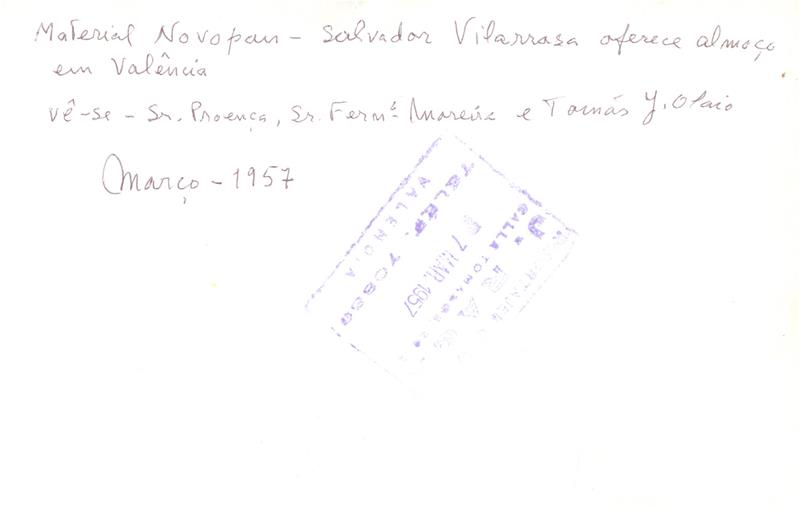 Material Novopan - Salvador Vilarrasa oferece almoço
em Valência
vê-se - Sr. Proença, Sr. Fernᵈ. Moreira e Tomás J. Olaio
Março - 1957
7 MAR. 1957
TELEF. 70850
VALENCIA